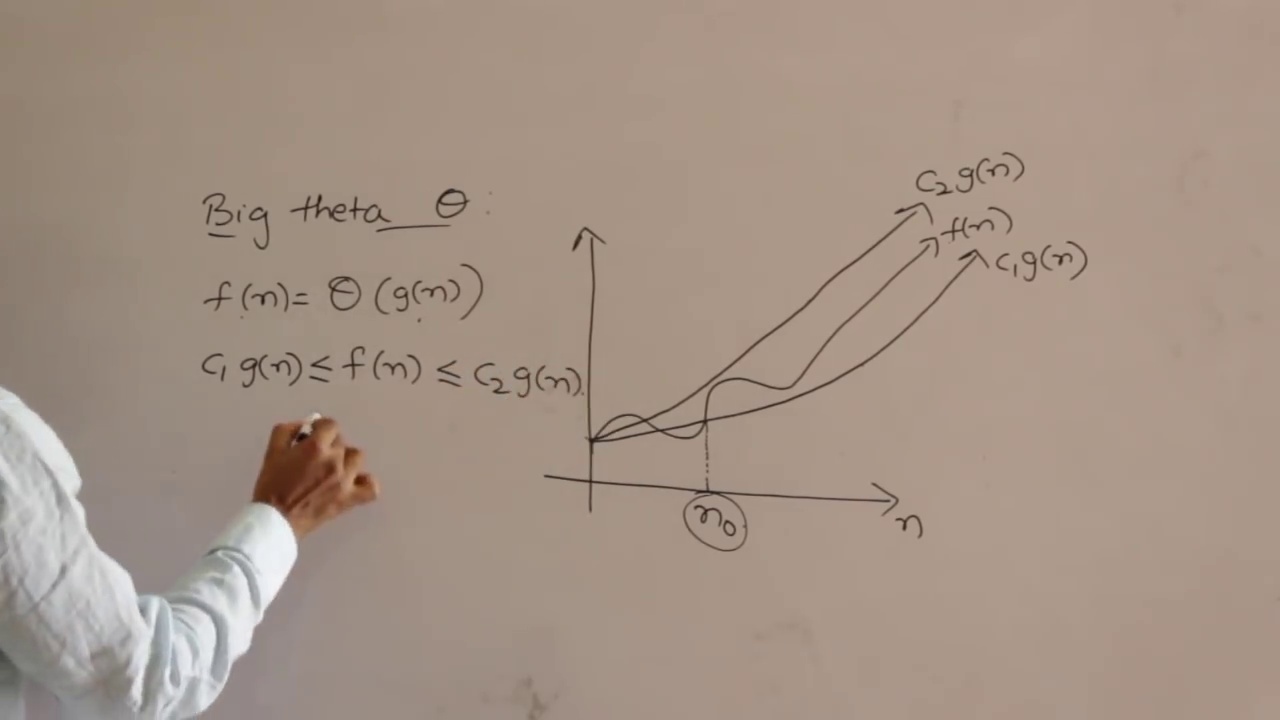 Big theta θ:
f(n) = θ (g(n))
c₁ g(n) ≤ f(n) ≤ c₂ g(n).
c₂ g(n)
f(n)
c₁ g(n)
n₀
n